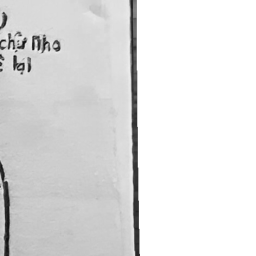 chữ nho
lại